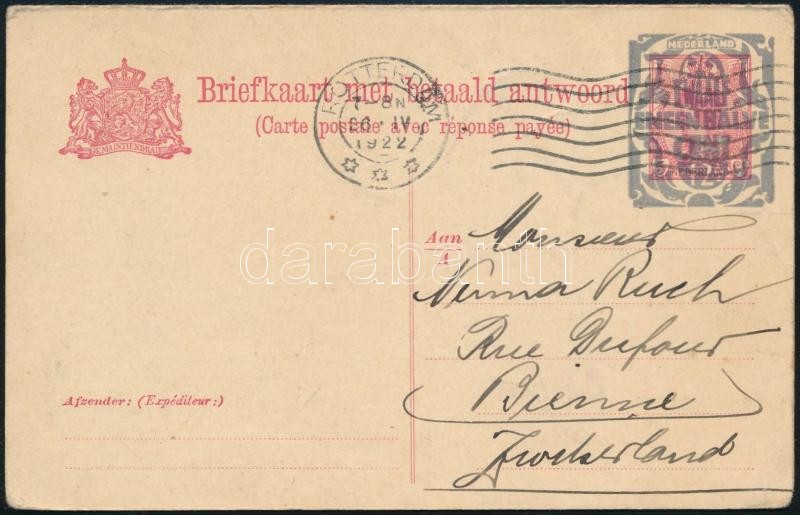 NEDERLAND
Briefkaart met betaald antwoord
(Carte postale avec réponse payée)
JE MAINTIENDRAI
ROTTERDAM
7-8N
26 IV
1922
2
NEDERLAND
12½
Aan
A
Monsieur
Numa Ruch
Rue Dufour
Bienne
Zwitserland
Afzender: (Expéditeur:)
darabanth